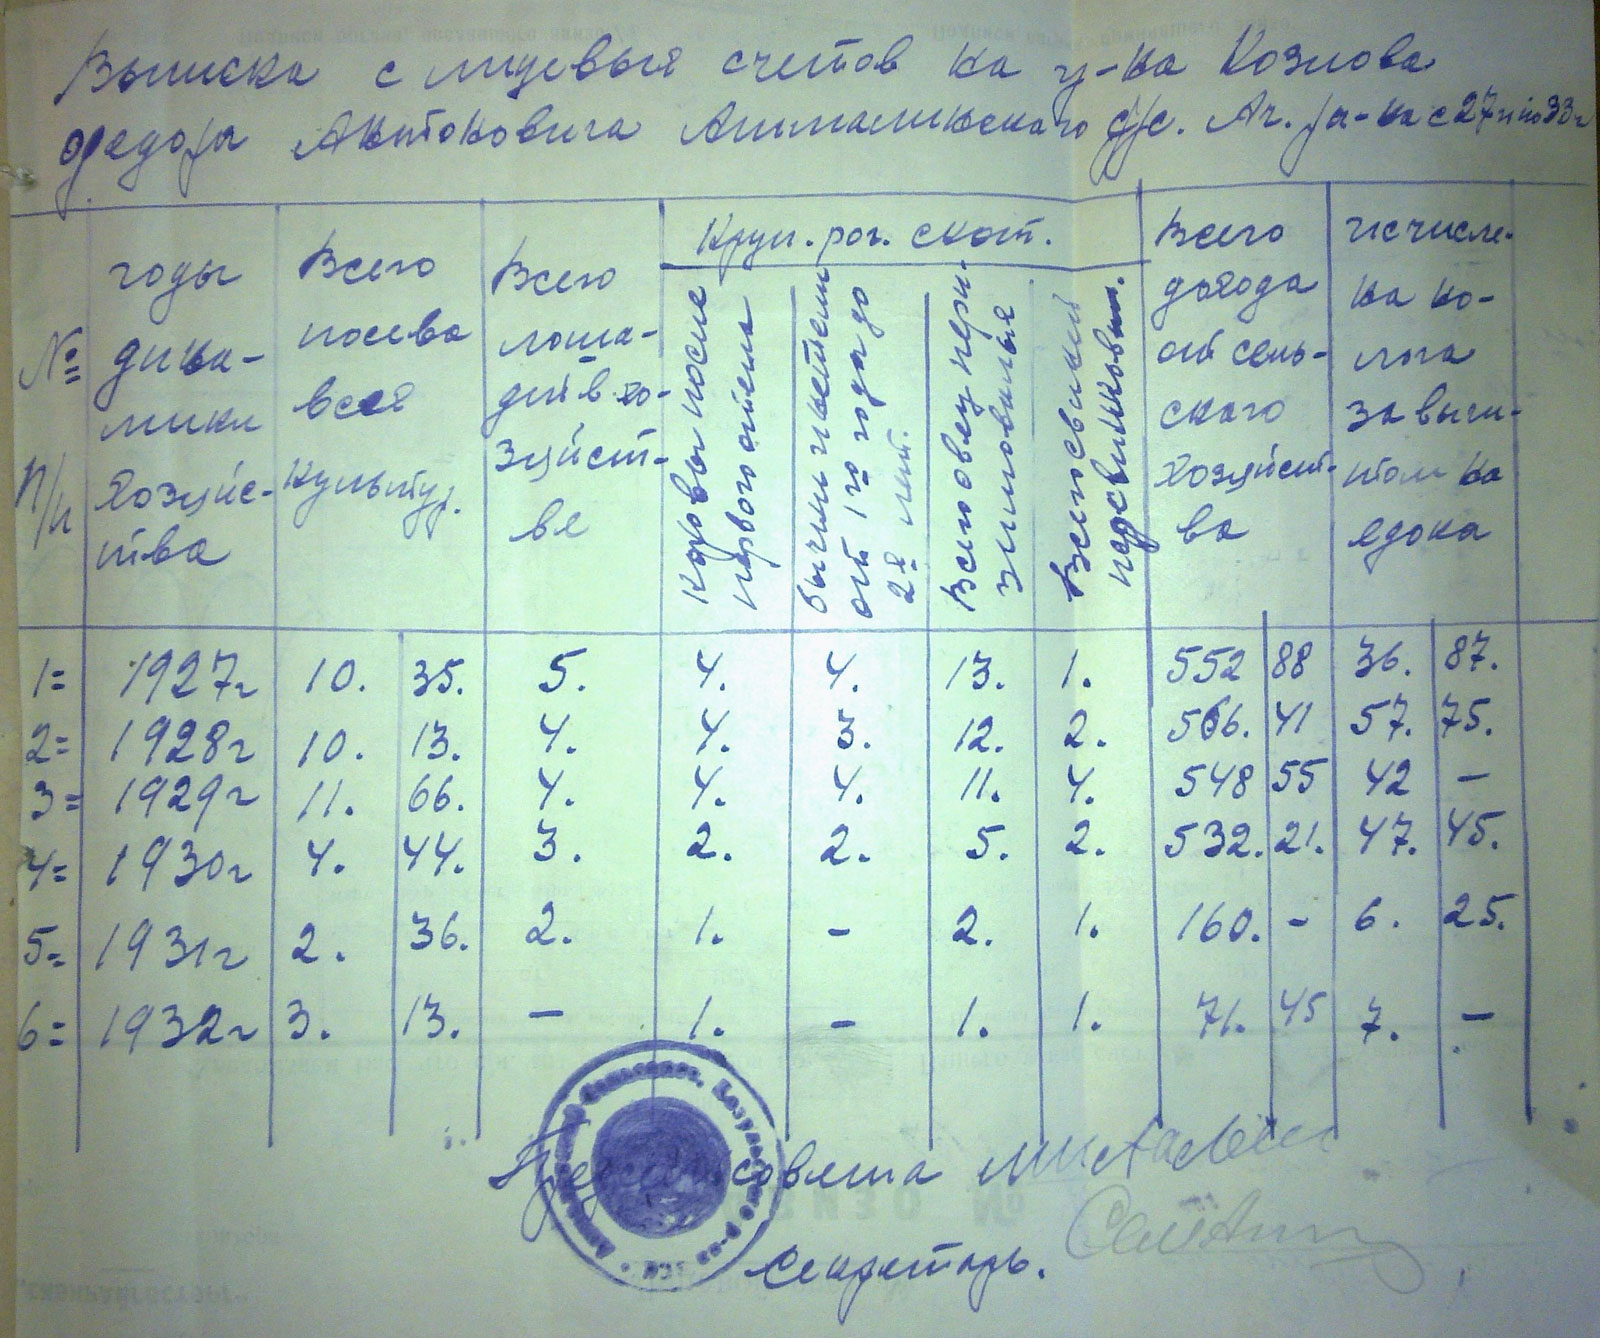 Выписка с лицевых счетов на гр-на Козлова
Федора Антоновича с/с. Ач. р-на с 27 г. по 33 г
№ п/п
годы дина- мики хозяйс- тва
Всего посева всех культур.
Всего лоша- дей в хо- зяйст- ве
Круп. рог. скот.
Коровы после первого отела
бычки и нетели от 1го года до 2х лет.
Всего овец пере- зимовалых
Всего свиней подсвинковых.
Всего дохода от сель- ского хозяйст- ва
исчисле- на на- лога за выче- том на едока
1= 1927г 10. 35. 5. 4. 4. 13. 1. 552 88 36. 87.
2= 1928г 10. 13. 4. 4. 3. 12. 2. 566. 41 57. 75.
3= 1929г 11. 66. 4. 4. 4. 11. 4. 548 55 42 –
4= 1930г 4. 44. 3. 2. 2. 5. 2. 532. 21. 47. 45.
5= 1931г 2. 36. 2. 1. – 2. 1. 160. – 6. 25.
6= 1932г 3. 13. – 1. – 1. 1. 71. 45 7. –
Пред. совета
Секретарь.